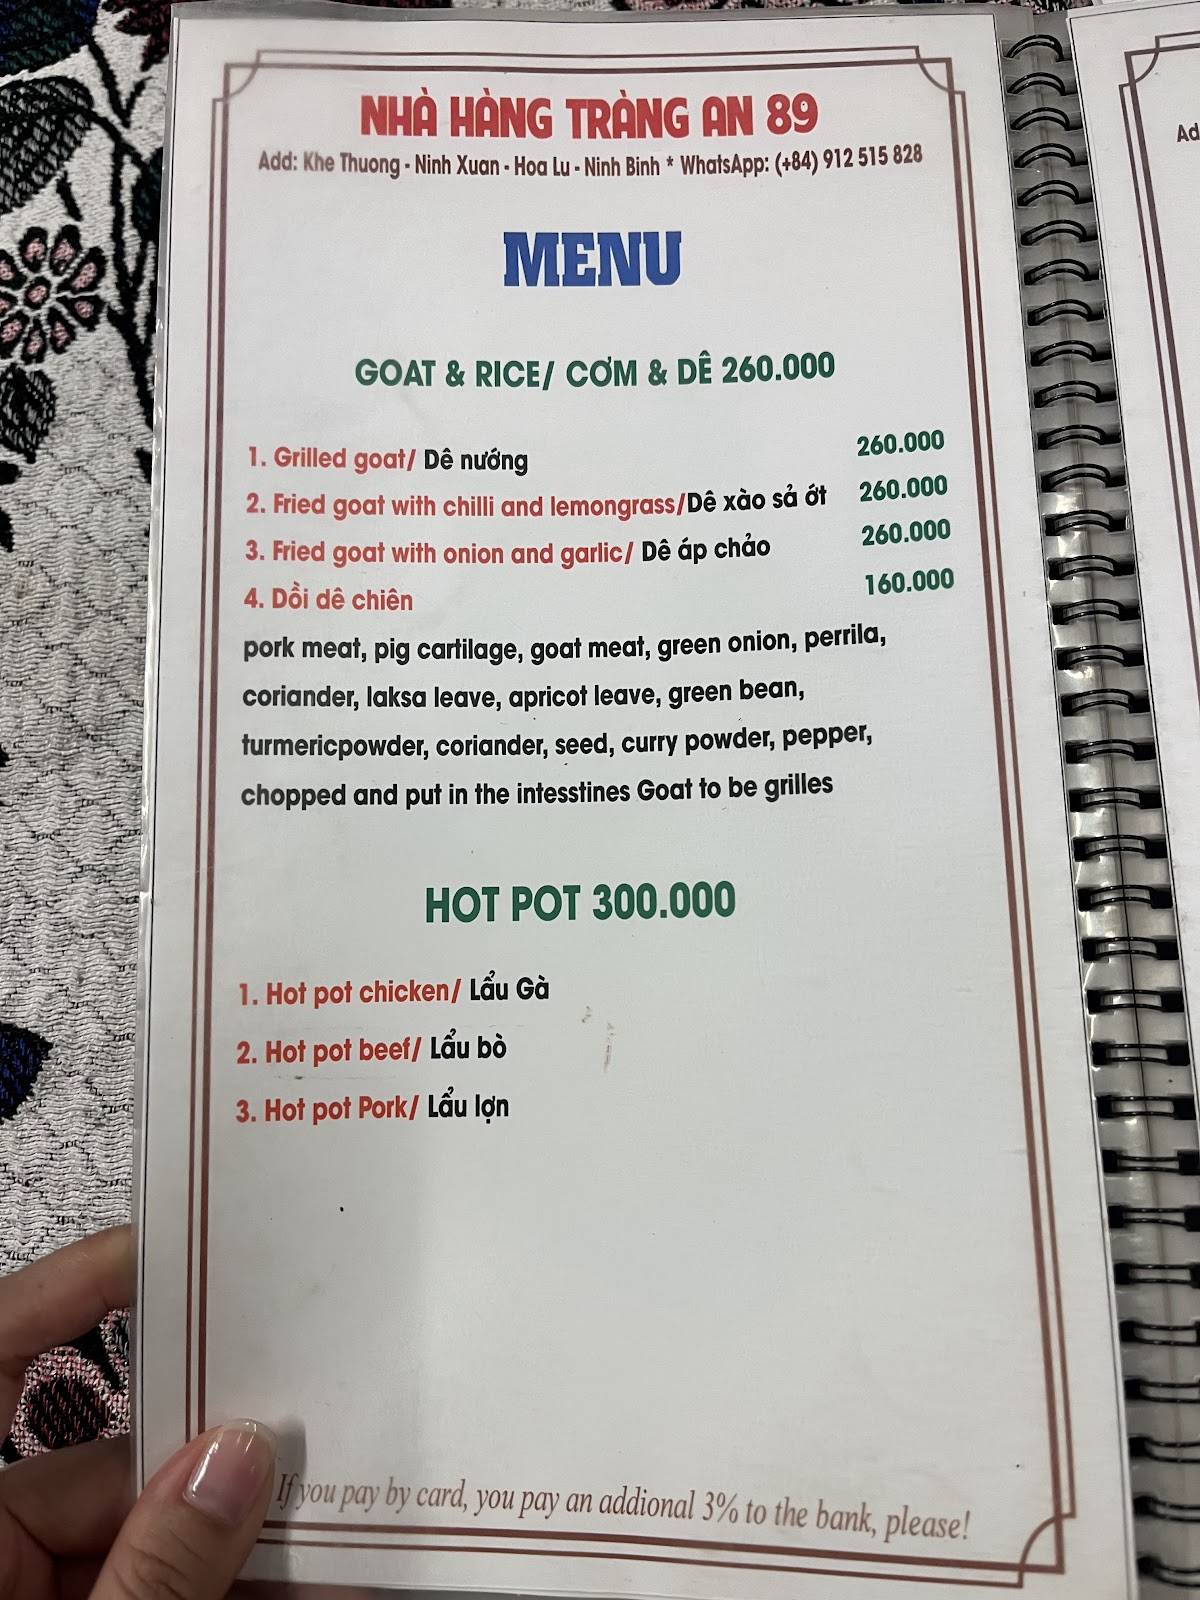 NHÀ HÀNG TRÀNG AN 89
Add: Khe Thuong - Ninh Xuan - Hoa Lu - Ninh Binh * WhatsApp: (+84) 912 515 828
MENU
GOAT & RICE/ CƠM & DÊ 260.000
1. Grilled goat/ Dê nướng 260.000
2. Fried goat with chilli and lemongrass/Dê xào sả ớt 260.000
3. Fried goat with onion and garlic/ Dê áp chảo 260.000
4. Dồi dê chiên 160.000
pork meat, pig cartilage, goat meat, green onion, perrila,
coriander, laksa leave, apricot leave, green bean,
turmericpowder, coriander, seed, curry powder, pepper,
chopped and put in the intesstines Goat to be grilles
HOT POT 300.000
1. Hot pot chicken/ Lẩu Gà
2. Hot pot beef/ Lẩu bò
3. Hot pot Pork/ Lẩu lợn
If you pay by card, you pay an addional 3% to the bank, please!
Ad